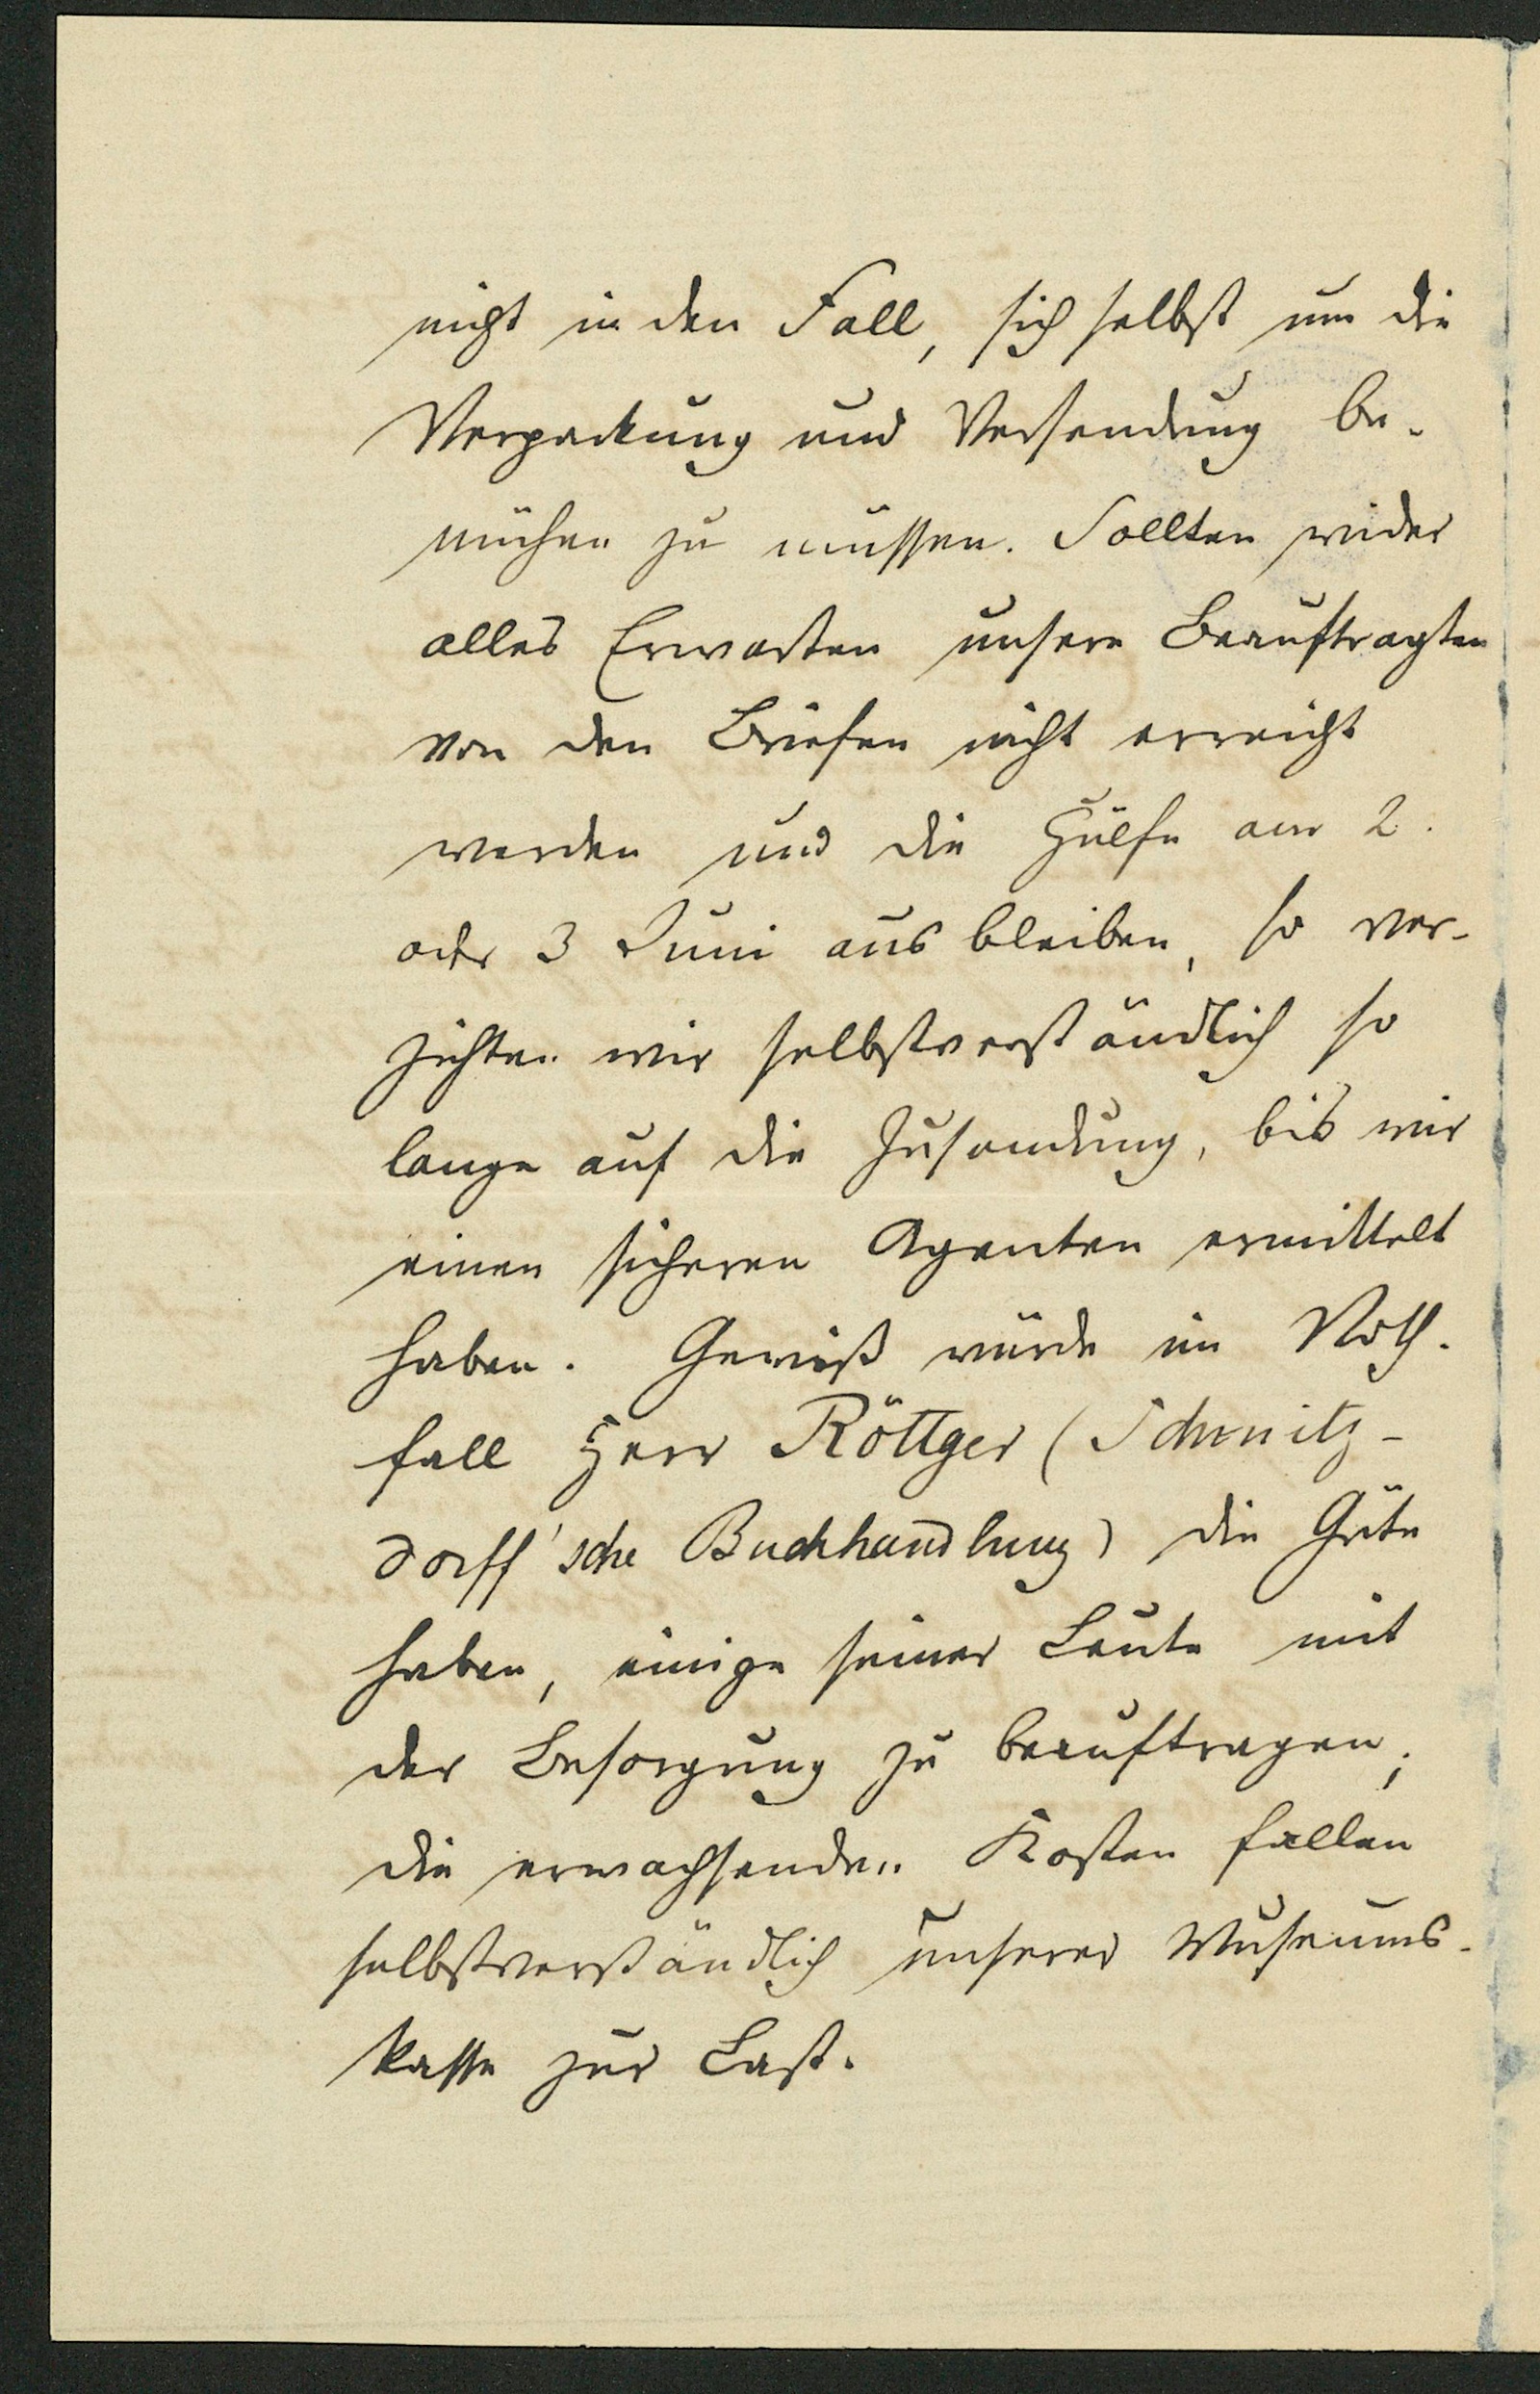 nicht in den Fall, sich selbst um die
Verpackung und Versendung be-
mühen zu müssen. Sollten wider
alles Erwarten unsere Beauftragten
von den Briefen nicht erreicht
werden und die Hülfe am 2.
oder 3 Juni aus bleiben, so ver-
zichten wir selbstverständlich so
lange auf die Zusendung, bis wir
einen sicheren Agenten ermittelt
haben. Gewiß würde im Noth-
fall Herr Röttger (Schmitz-
dorff'sche Buchhandlung) die Güte
haben, einige seiner Leute mit
der Besorgung zu beauftragen;
die erwachsenden Kosten fallen
selbstverständlich unserer Museums-
kasse zur Last.